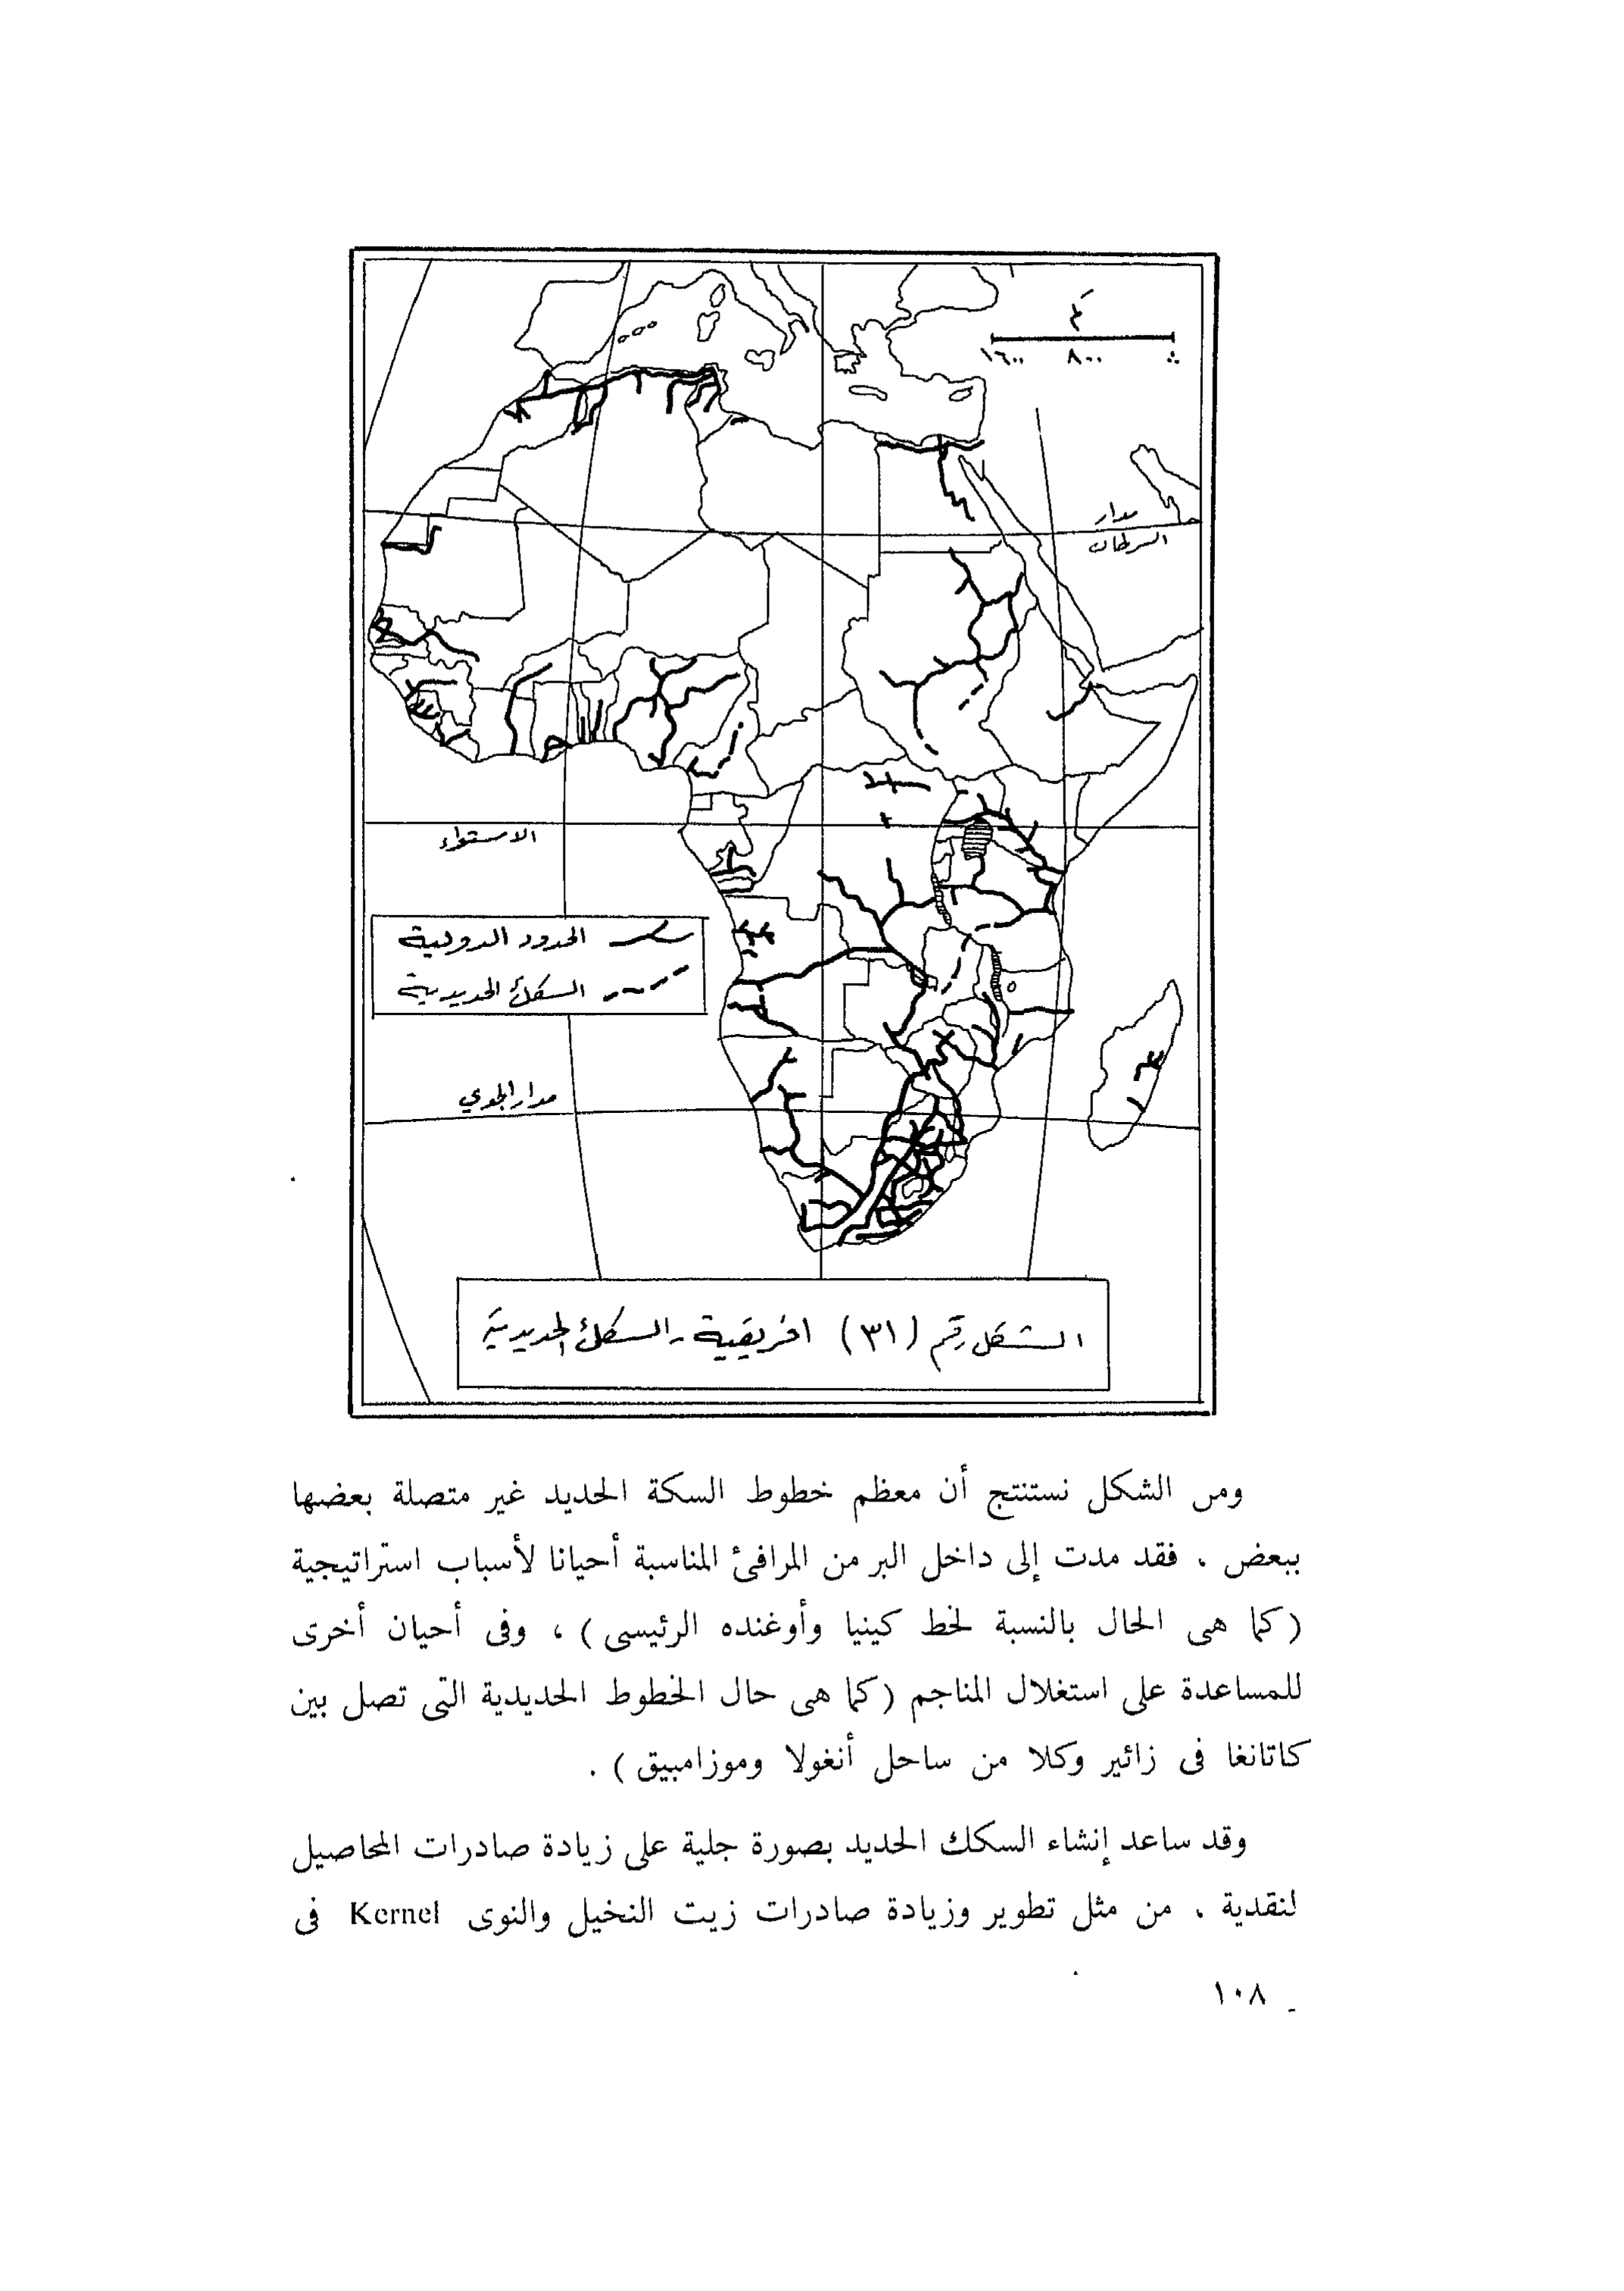 كم
١٦٠٠ ٨٠٠
مدار
السرطان
الاستواء
الحدود الدولية
السكك الحديدية
مدار الجدي
الشكل رقم (٣١) افريقية - السكك الحديدية
ومن الشكل نستنتج أن معظم خطوط السكة الحديد غير متصلة بعضها
ببعض . فقد مدت إلى داخل البر من المرافئ المناسبة أحيانا لأسباب استراتيجية
(كما هى الحال بالنسبة لخط كينيا وأوغنده الرئيسى) ، وفى أحيان أخرى
للمساعدة على استغلال المناجم (كما هى حال الخطوط الحديدية التى تصل بين
كاتانغا فى زائير وكلا من ساحل أنغولا وموزامبيق) .
وقد ساعد إنشاء السكك الحديد بصورة جلية على زيادة صادرات المحاصيل
لنقدية . من مثل تطوير وزيادة صادرات زيت النخيل والنوى Kernel فى
١٠٨